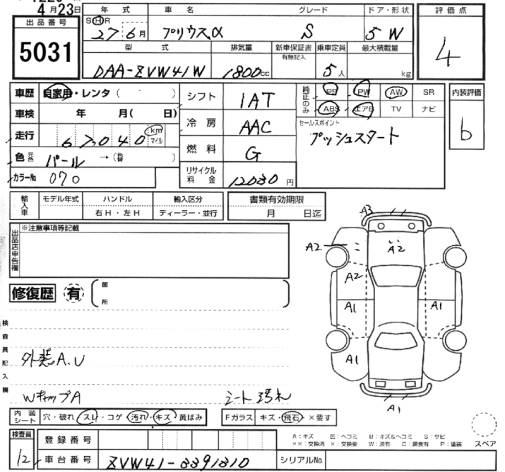 4月23日
出品番号
5031
年式 車名 グレード ドア・形状
27年6月 プリウスα S 5W
型式 排気量 新車保証書 有無記入 乗車定員 最大積載量
DAA-ZVW41W 1800cc 5人 kg
評価点
4
車歴 自家用・レンタ( )
車検 年 月(日)
走行 67040 km マイル
色 元色 パール →(替)
カラーNo 070
シフト 1AT
冷房 AAC
燃料 G
リサイクル料金 12080円
純正のみ PS PW AW SR
ABS エアB TV ナビ
セールスポイント
プッシュスタート
内装評価
b
輸入車 モデル年式 ハンドル 輸入区分
右H・左H ディーラー・並行
書類有効期限
月 日迄
出品店申告欄
※注意事項等記載
修復歴 有 箇所
検査員記入欄
外装A.U
WキャップA
シート汚れ
A3
A2 A2
A2
A1 A1
A1
A1
内装シート 穴・破れ スレ・コゲ 汚れ・キズ 黄ばみ
Fガラス キズ・飛石・×要す
スペア
検査員
12
登録番号
車台番号 ZVW41-3391310
シリアルNo